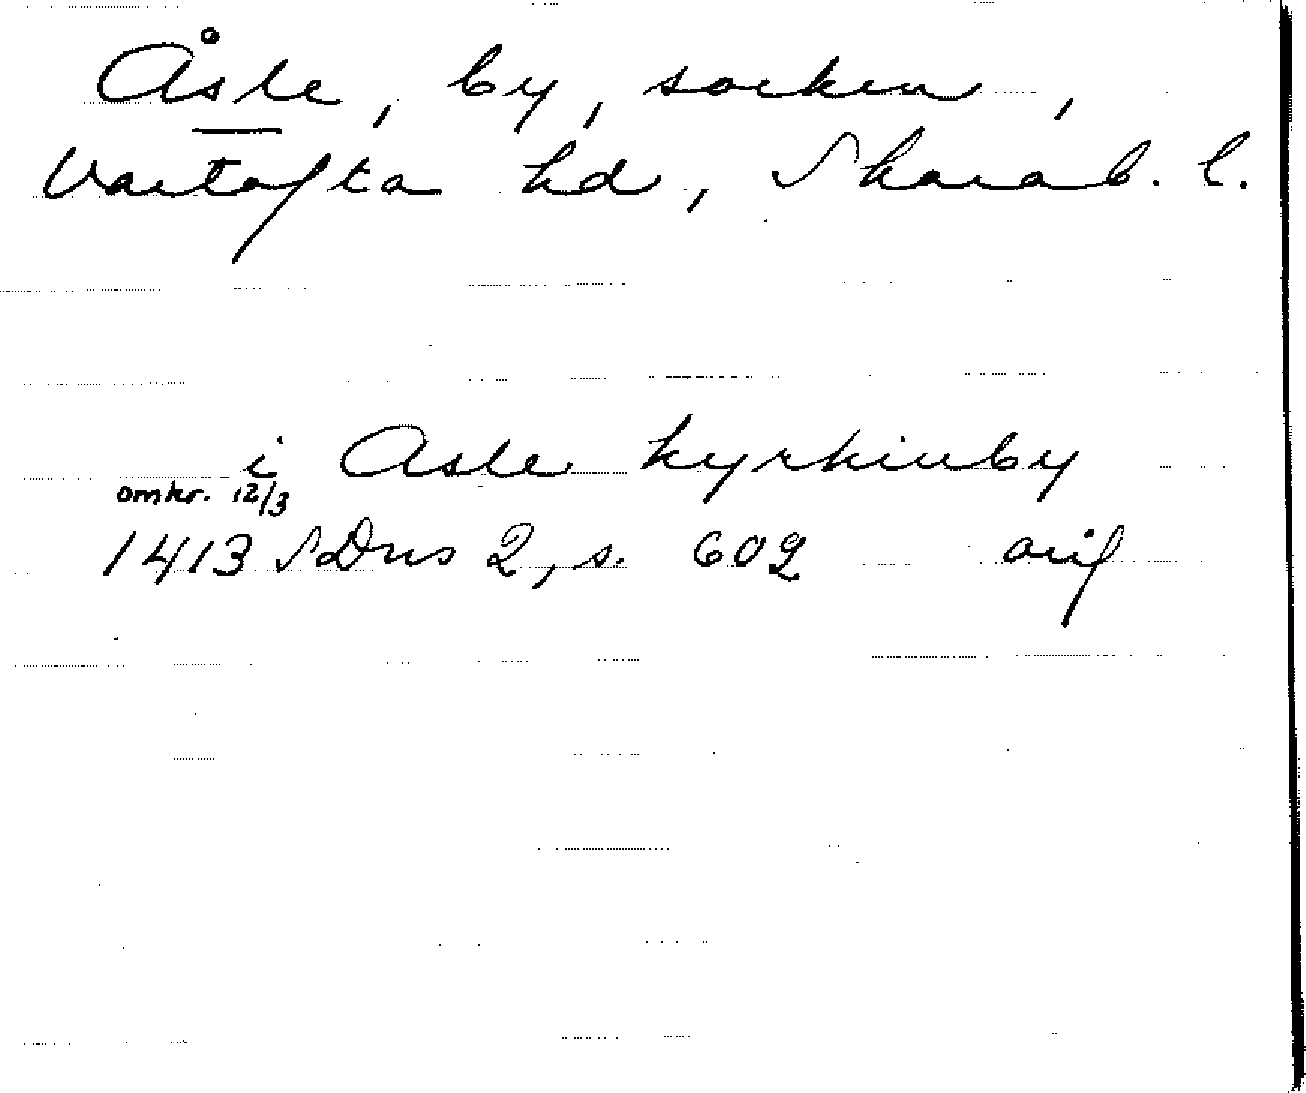 Åsle, by, socken,
Vartofta hd, Skarab. l.
i Asle kyrkiuby
omkr. 12/3
1413 SDns 2, s. 602 orig